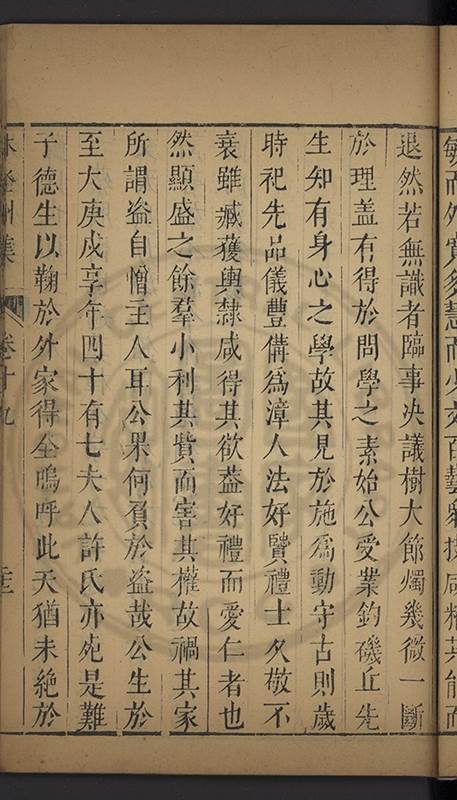 敏而外實多慧而少文百藝䝿技咸精其能而
退然若無識者臨事决議樹大節燭幾微一斷
於理葢有得於問學之素始公受業釣磯丘先
生知有身心之學故其見於施爲動守古則歲
時祀先品儀豐備爲漳人法好賢禮士久敬不
衰雖臧獲輿隸咸得其欲葢好禮而愛仁者也
然顯盛之餘羣小利其貲而害其權故禍其家
所謂盗自憎主人耳公果何負於盗哉公生於
至大庚戍享年四十有七夫人許氏亦死是難
子德生以鞠於外家得全嗚呼此天猶未絶於
林登州集 卷十九